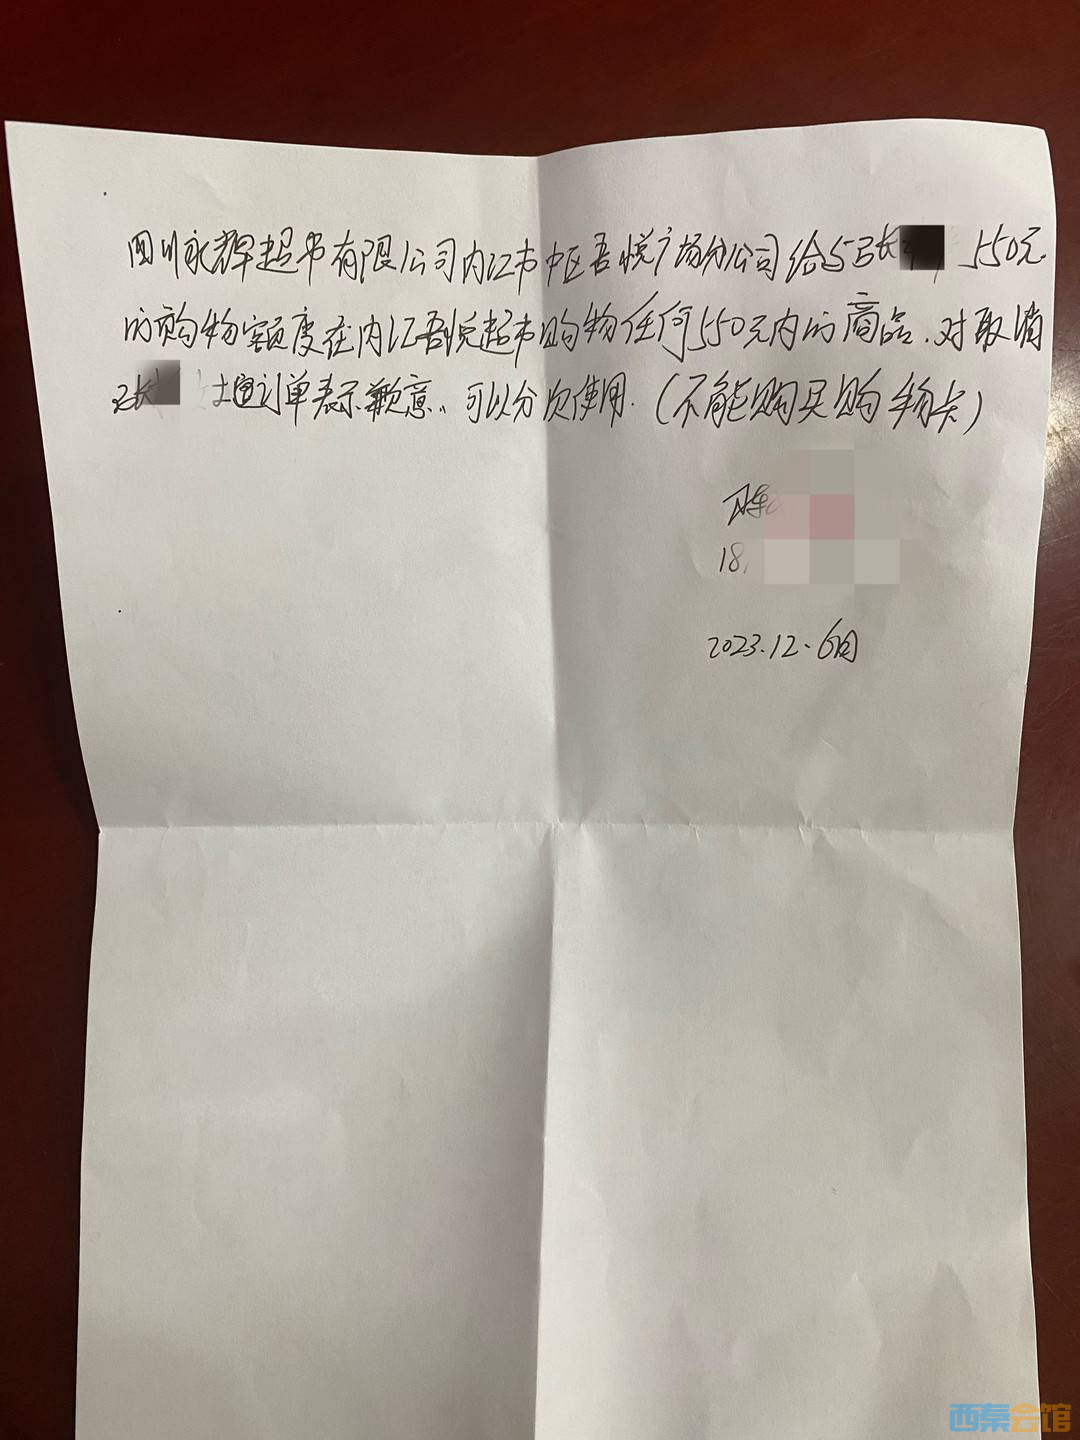 四川永辉超市有限公司内江市中区吾悦广场分公司给与张 550元
的购物额度在内江吾悦超市购物任何550元内的商品.对取消
张 士 订单表示歉意.可以分次使用.(不能购买购物卡)
陈
18
2023.12.6日
西秦会馆